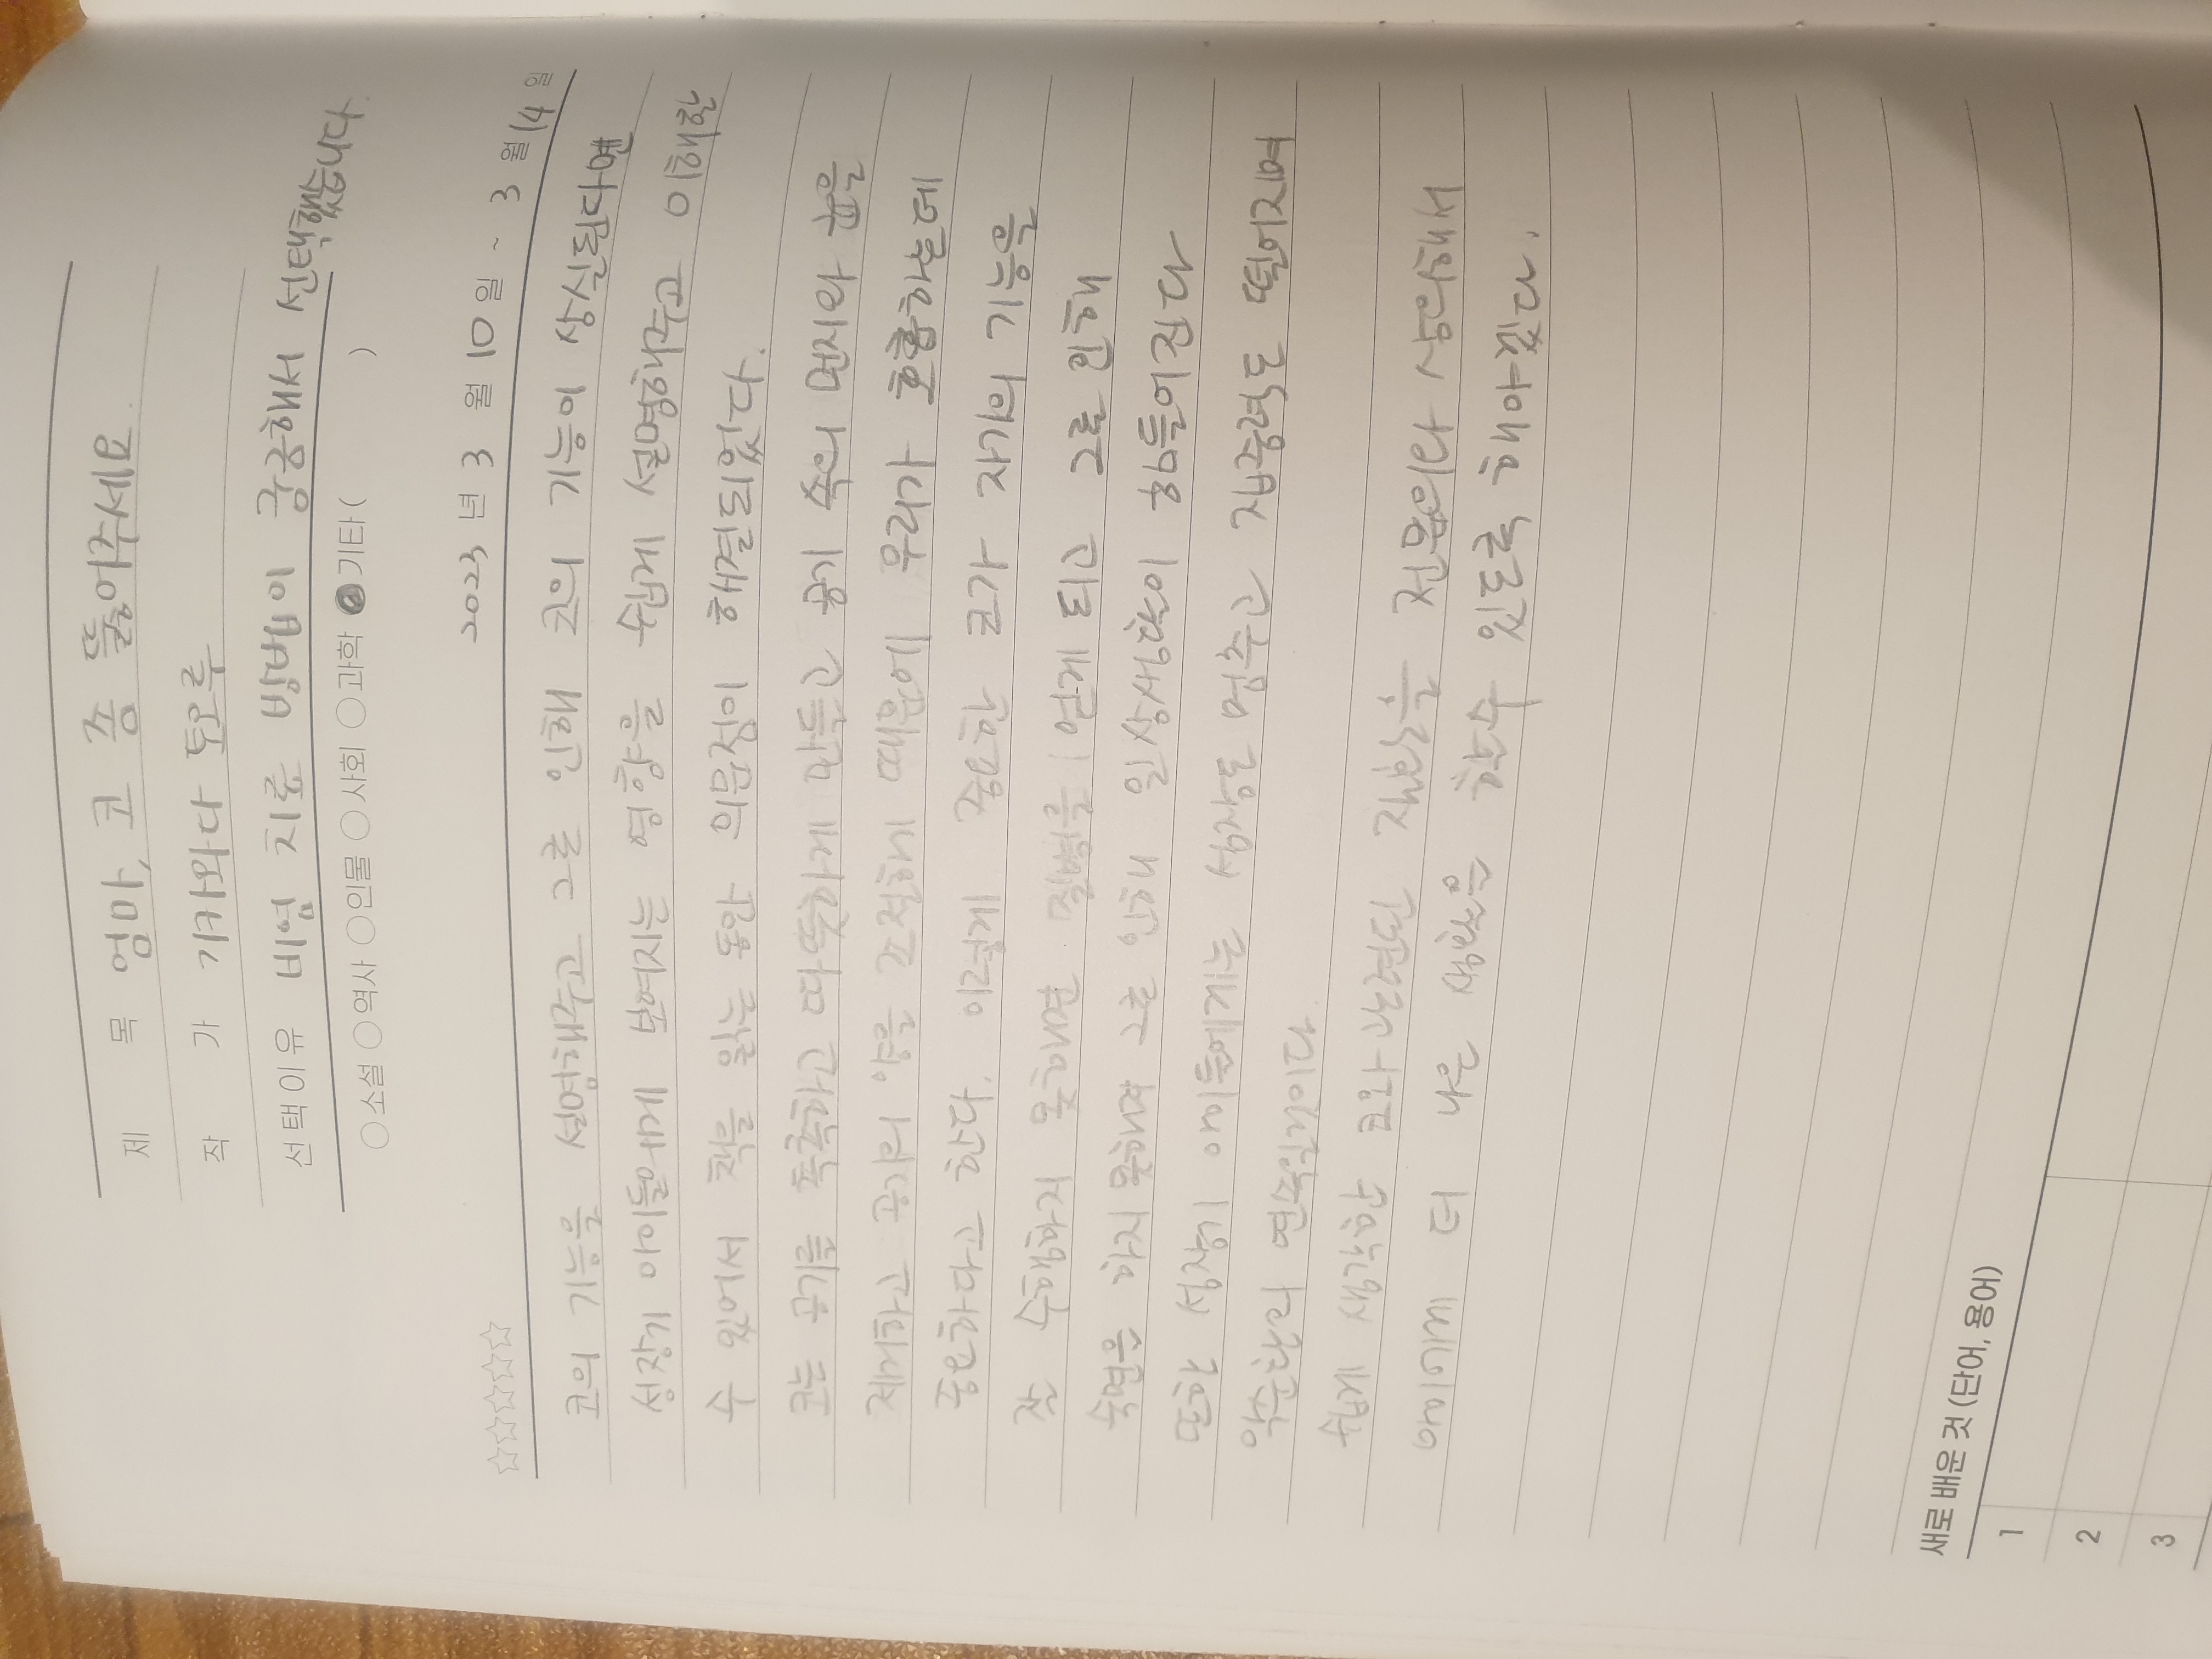 제 목 엄마, 코 좀 뚫어주세요.
작 가 기카와다 토오루
선택이유 비염 치료 방법이 궁금해서 선택했습니다.
소설 역사 인물 사회 과학 기타 ( )
2023 년 3 월 10 일 ~ 3 월 14 일
코의 기능을 설명해주고 그로 인해 코의 기능이 상실된다면
성장기 아이들에게 보여지는 영향을 쉽게 설명해주고 이해할
수 있어서 책을 읽는 동안 의문점이 해결되었다.
코는 공기를 촉촉하고 따뜻하게 만들고 공기 속의 먼지와 균을
제거하고 공기의 양을 조절하기 때문에 우리가 호흡하는데
중요하다고 한다. 이렇게 중요한 코가 자기의 기능을
잘 수행하지 못해면 질병을 얻게 되고 그로 인해
숙면은 하지 못해 그로 인해 일상생활이 힘들어진다
또한 성장기 아이들에게는 성장도 멈추고 집중력도 떨어지며
악순환의 연속일것이다.
쉽게 생각한 코와 관련된 질환을 전문의와 상의해서
아이에게 더 나은 생활을 할수 있도록 해야겠다.
새로 배운 것 (단어, 용어)
1
2
3